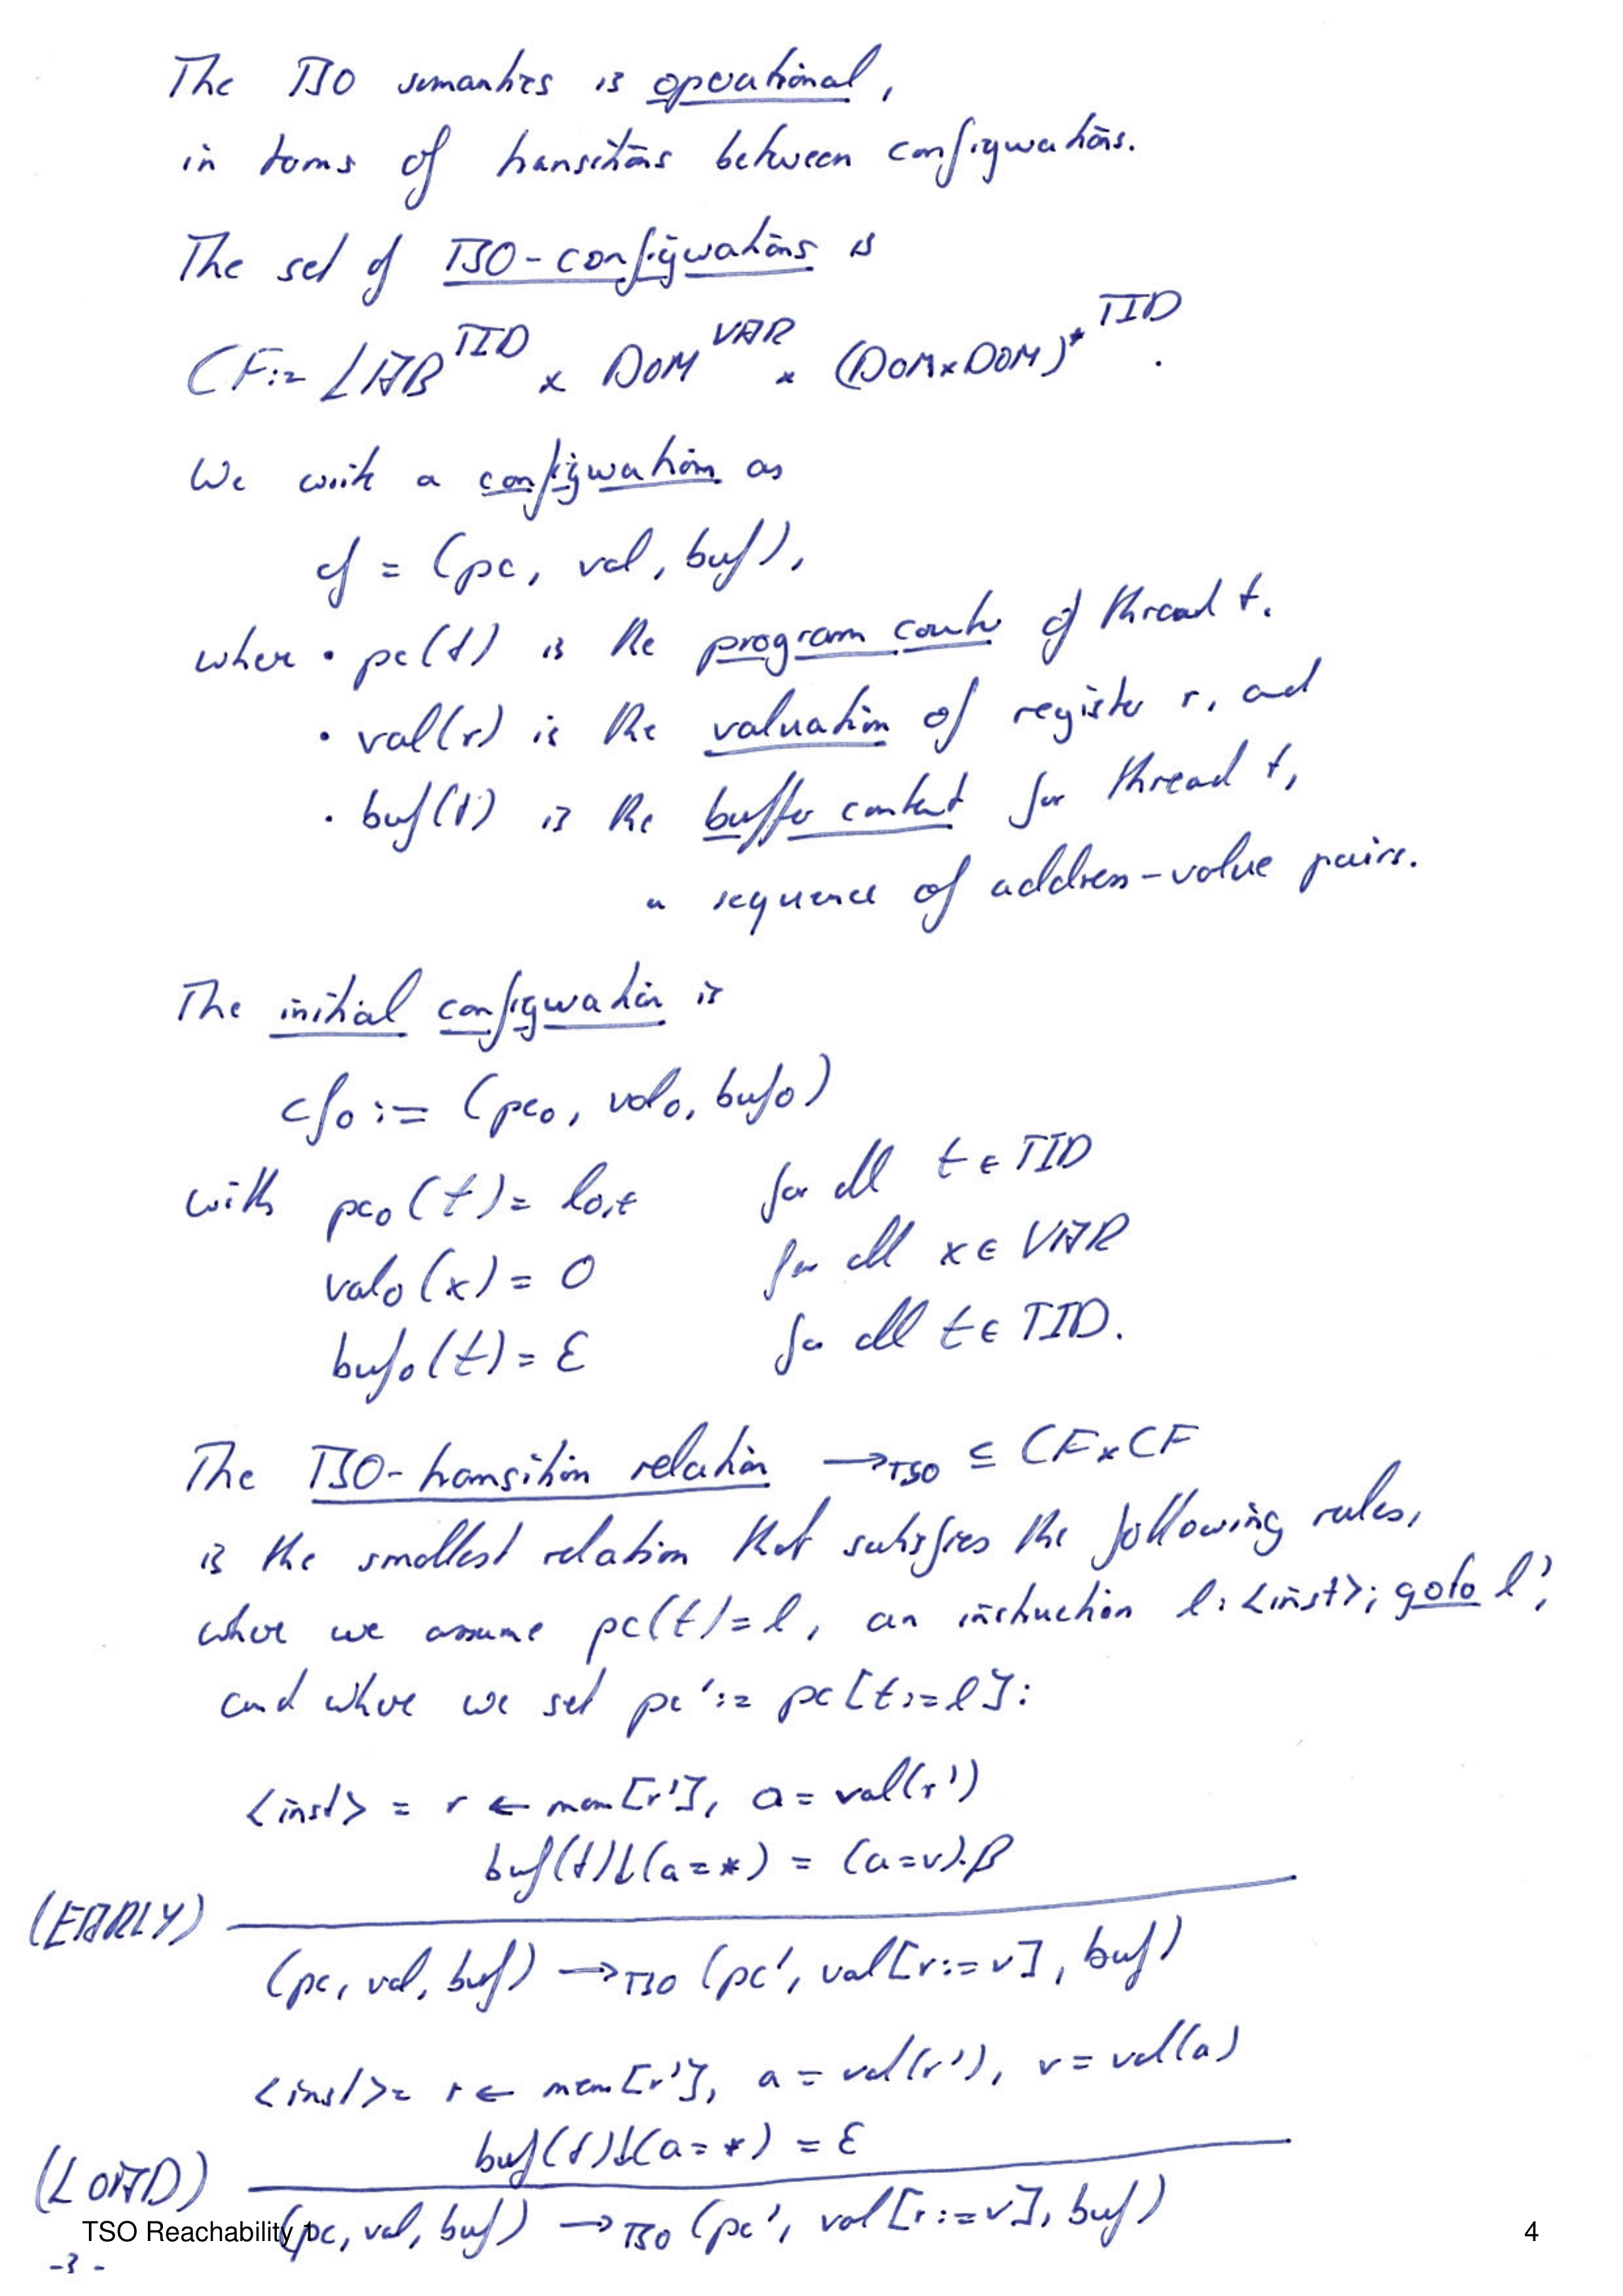 The TSO semantics is operational,
in terms of transitions between configurations.
The set of TSO-configurations is
CF := LAB^TID × DOM^VAR × (DOM×DOM)*^TID.
We write a configuration as
cf = (pc, val, buf),
where • pc(t) is the program counter of thread t,
• val(r) is the valuation of register r, and
• buf(t) is the buffer content for thread t,
a sequence of address-value pairs.
The initial configuration is
cf₀ := (pc₀, val₀, buf₀)
with pc₀(t) = l₀,t for all t ∈ TID
val₀(x) = 0 for all x ∈ VAR
buf₀(t) = ε for all t ∈ TID.
The TSO-transition relation →TSO ⊆ CF×CF
is the smallest relation that satisfies the following rules,
where we assume pc(t) = l, an instruction l: <inst>; goto l',
and where we set pc' := pc[t := l']:
<inst> = r ← mem[r'], a = val(r')
buf(t)↓(a=*) = (a=v).β
(EARLY)
(pc, val, buf) →TSO (pc', val[r:=v], buf)
<inst> = r ← mem[r'], a = val(r'), v = val(a)
buf(t)↓(a=*) = ε
(LOAD)
(pc, val, buf) →TSO (pc', val[r:=v], buf)
TSO Reachability 1
4
-3-